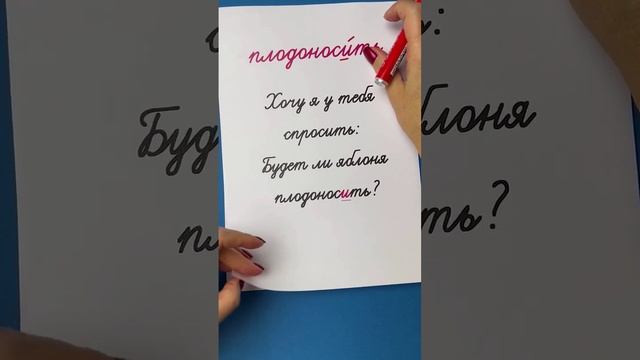 плодоноси́ть
Хочу я у тебя
спросить:
Будет ли яблоня
плодоносить?